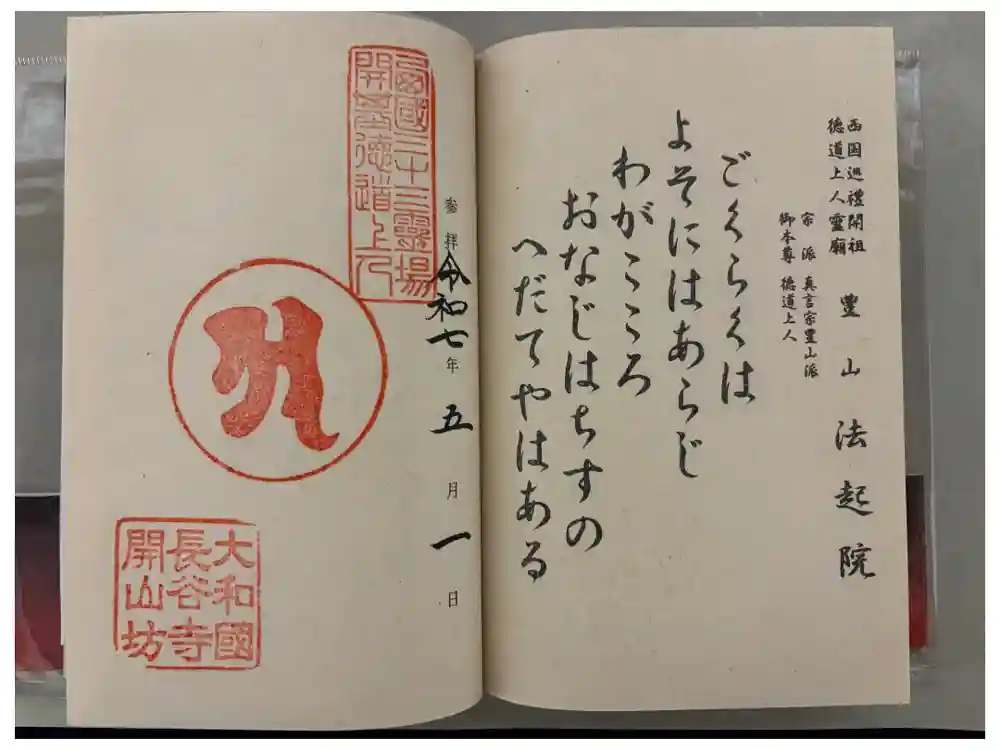 西国巡禮開祖
德道上人靈廟
豊山法起院
宗派 真言宗豊山派
御本尊 德道上人
ごくらくは
よそにはあらじ
わがこころ
おなじはちすの
へだてやはある
参拝令和七年五月一日
西國三十三霊場
開基徳道上人
大和國
長谷寺
開山坊